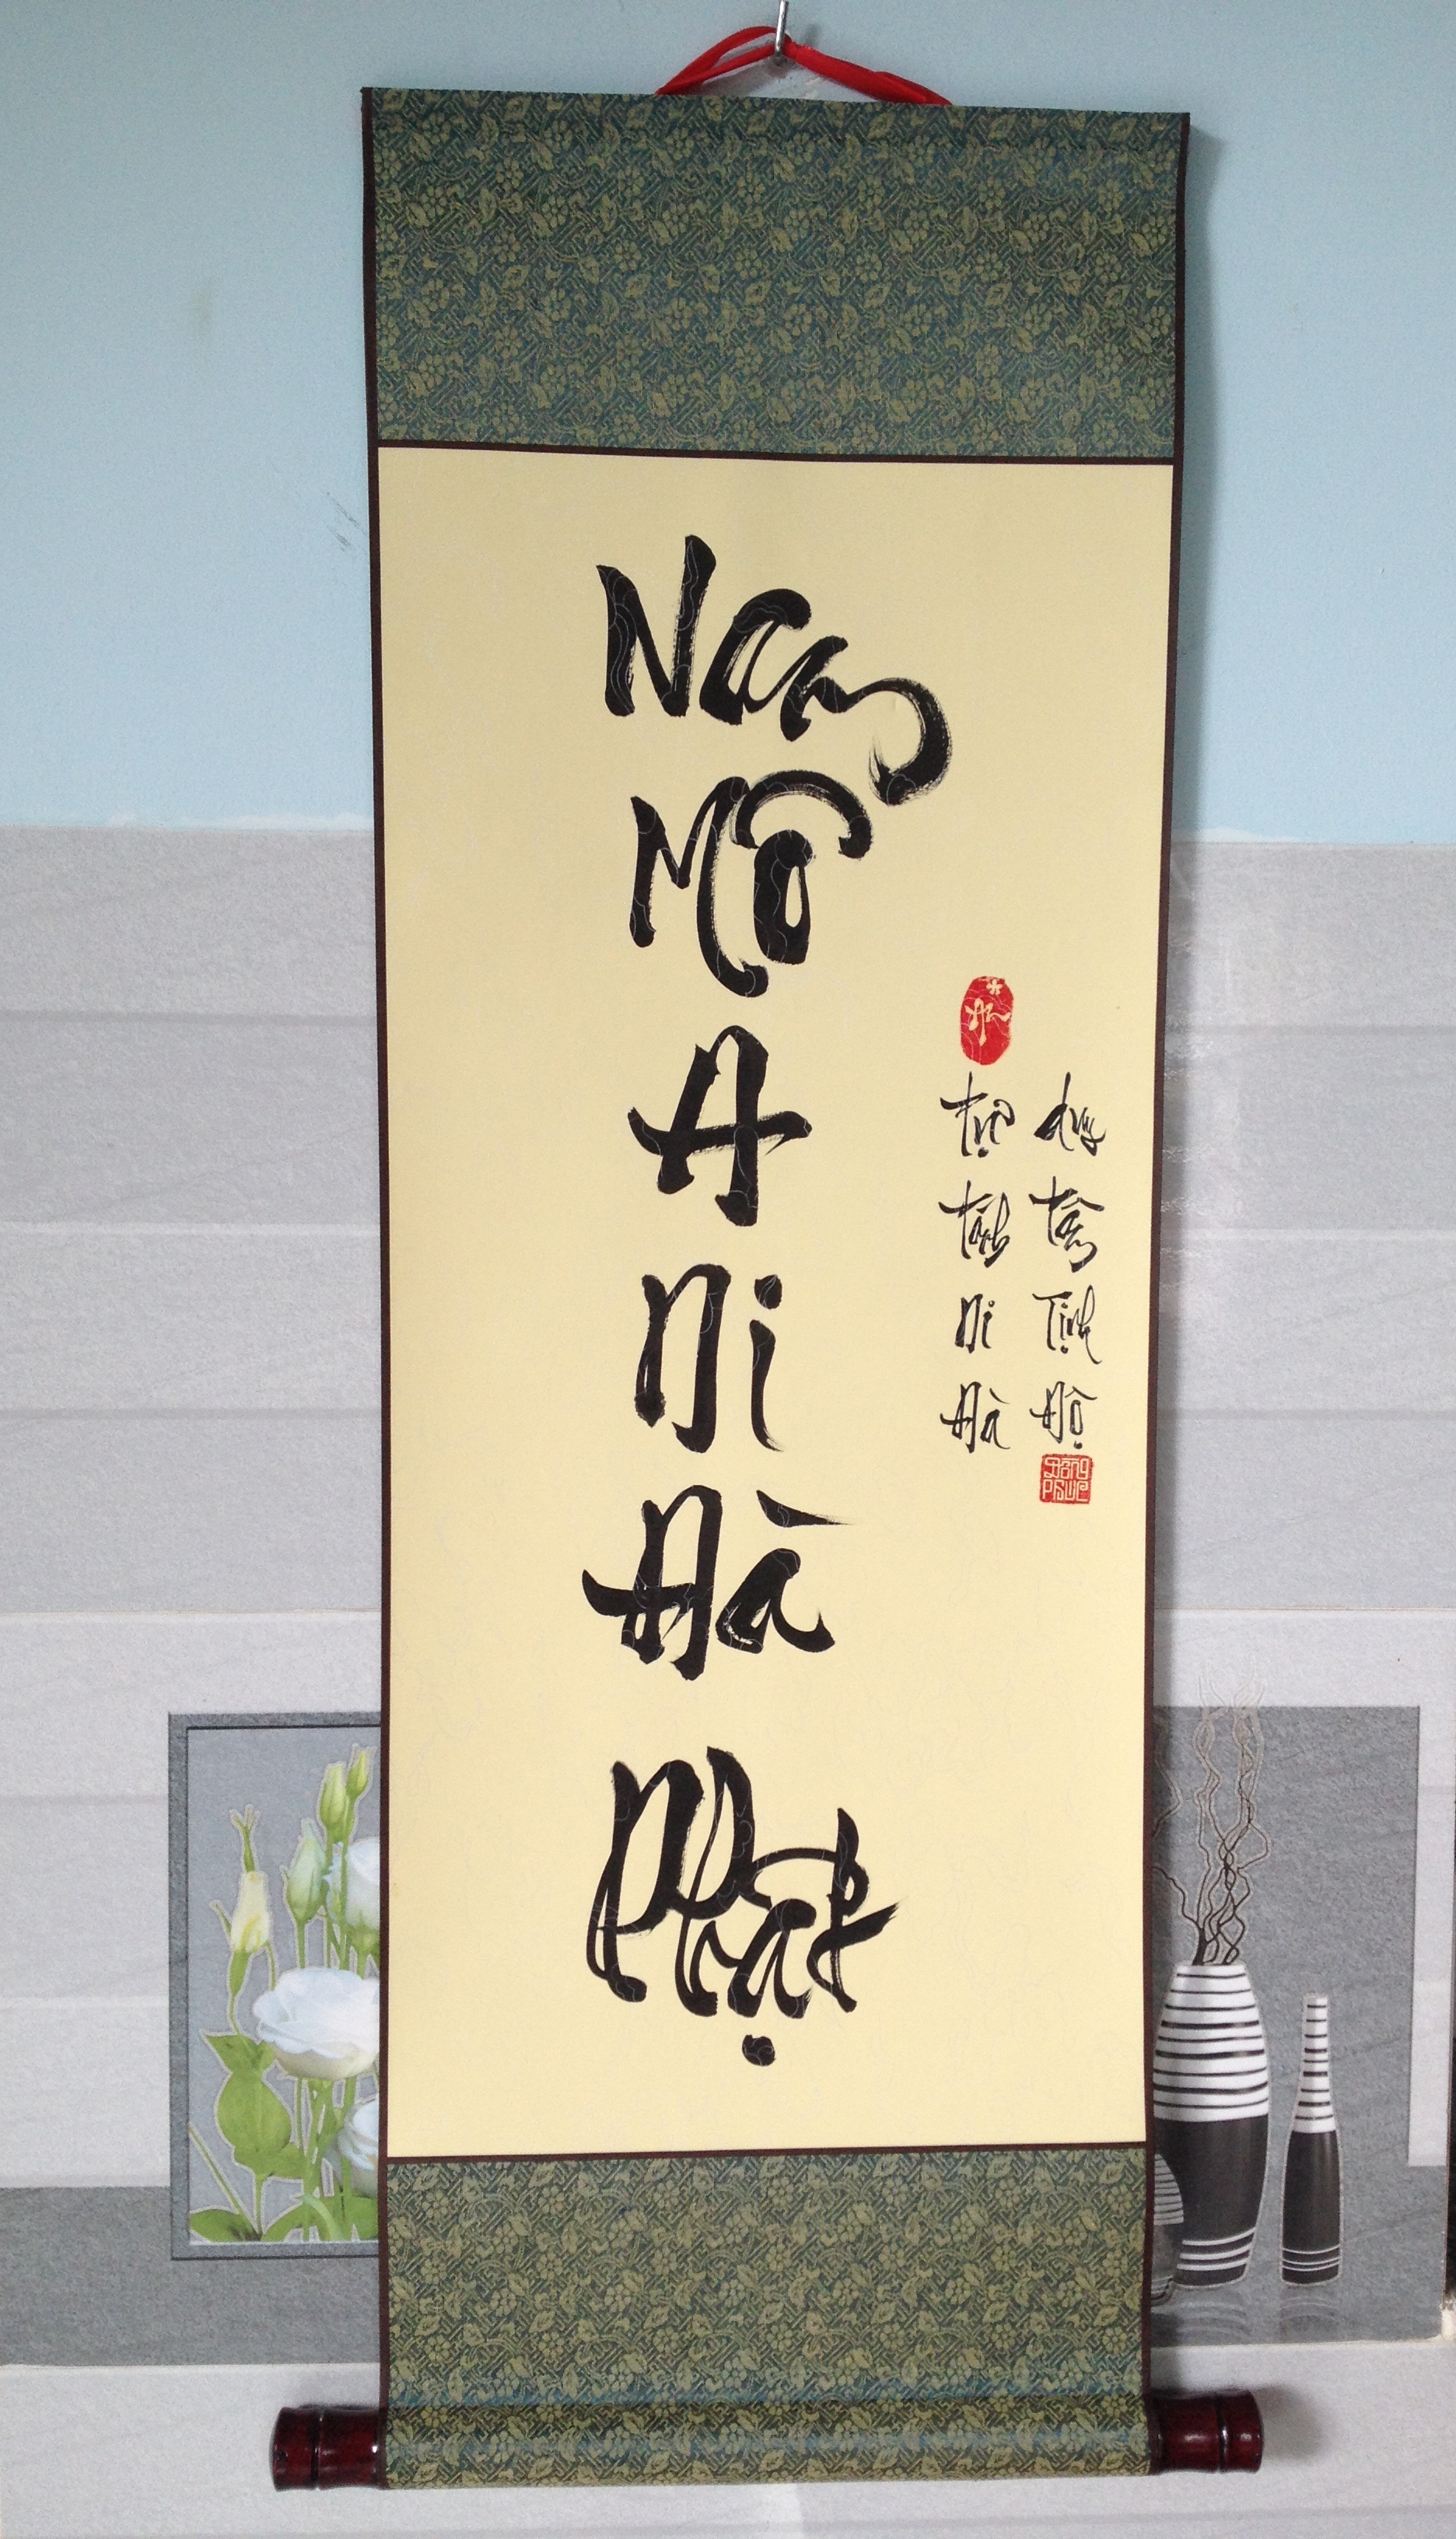 Nam Mô A Di Đà Phật
An
tự tánh Di Đà
duy tâm Tịnh Độ